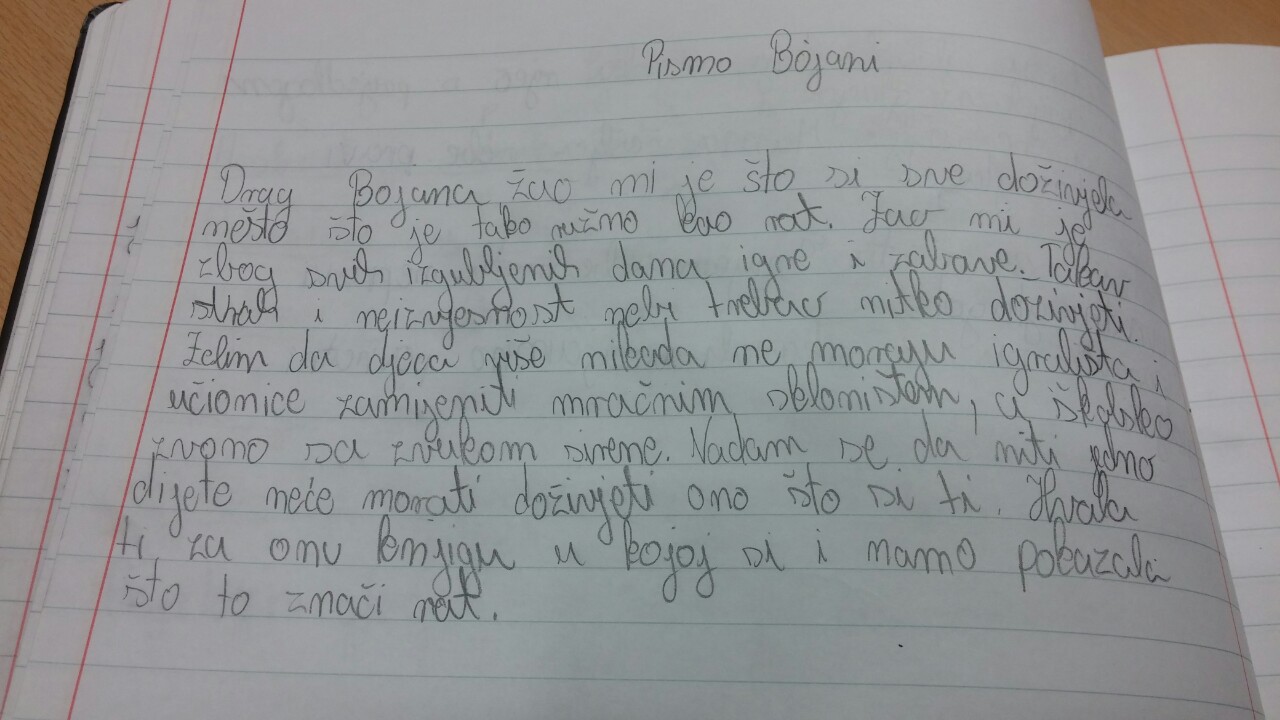 Pismo Bojani
Drag Bojana žao mi je što si sve doživjela
nešto što je tako ružno kao rat. Žao mi je
zbog svih izgubljenih dana igre i zabave. Takav
strah i neizvjesnost nebi trebao nitko doživjeti.
Želim da djeca više nikada ne moraju igrališta i
učionice zamijeniti mračnim skloništem, a školsko
zvono sa zvukom sirene. Nadam se da niti jedno
dijete neće morati doživjeti ono što si ti. Hvala
ti za onu knjigu u kojoj si i nama pokazala
što to znači rat.